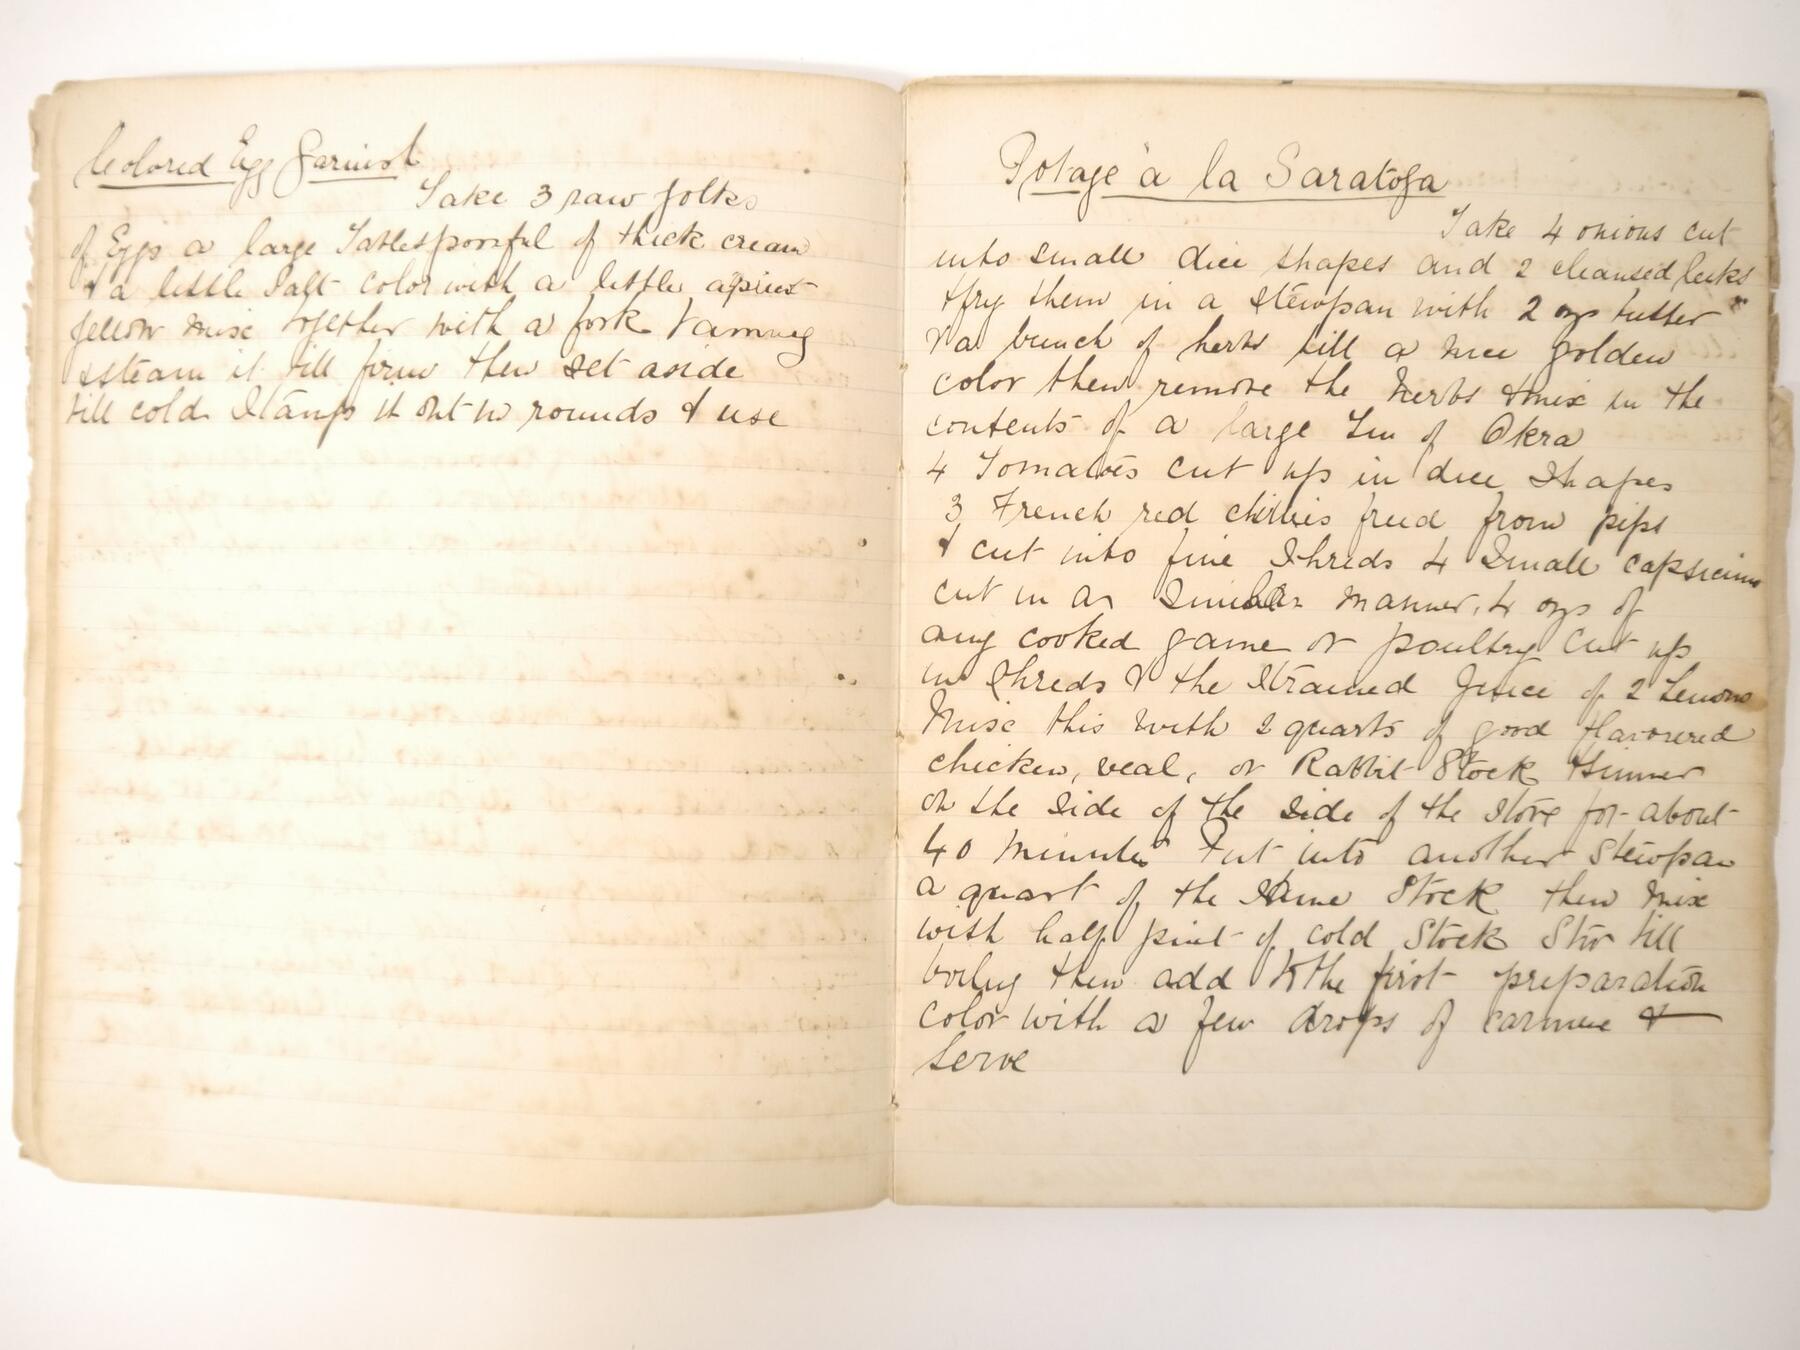 Colored Egg Garnish
Take 3 raw yolks
of Eggs a large Tablespoonful of thick cream
& a little Salt color with a little apricot
yellow mix together with a fork & tammy
& steam it till firm then set aside
till cold Stamp it out in rounds & use
Potage à la Saratoga
Take 4 onions cut
into small dice shapes and 2 cleansed leeks
& fry them in a stewpan with 2 ozs butter
& a bunch of herbs till a nice golden
color then remove the herbs & mix in the
contents of a large Tin of Okra
4 Tomatoes cut up in dice Shapes
3 French red chillies freed from pips
& cut into fine Shreds 4 Small capsicums
cut in a similar manner, 4 ozs of
any cooked game or poultry cut up
in Shreds & the Strained Juice of 2 Lemons
Mix this with 2 quarts of good flavoured
chicken, veal, or Rabbit Stock & simmer
on the side of the side of the stove for about
40 minutes Put into another Stewpan
a quart of the Same Stock then mix
with half pint of cold Stock Stir till
boiling then add to the first preparation
color with a few drops of carmine &
Serve